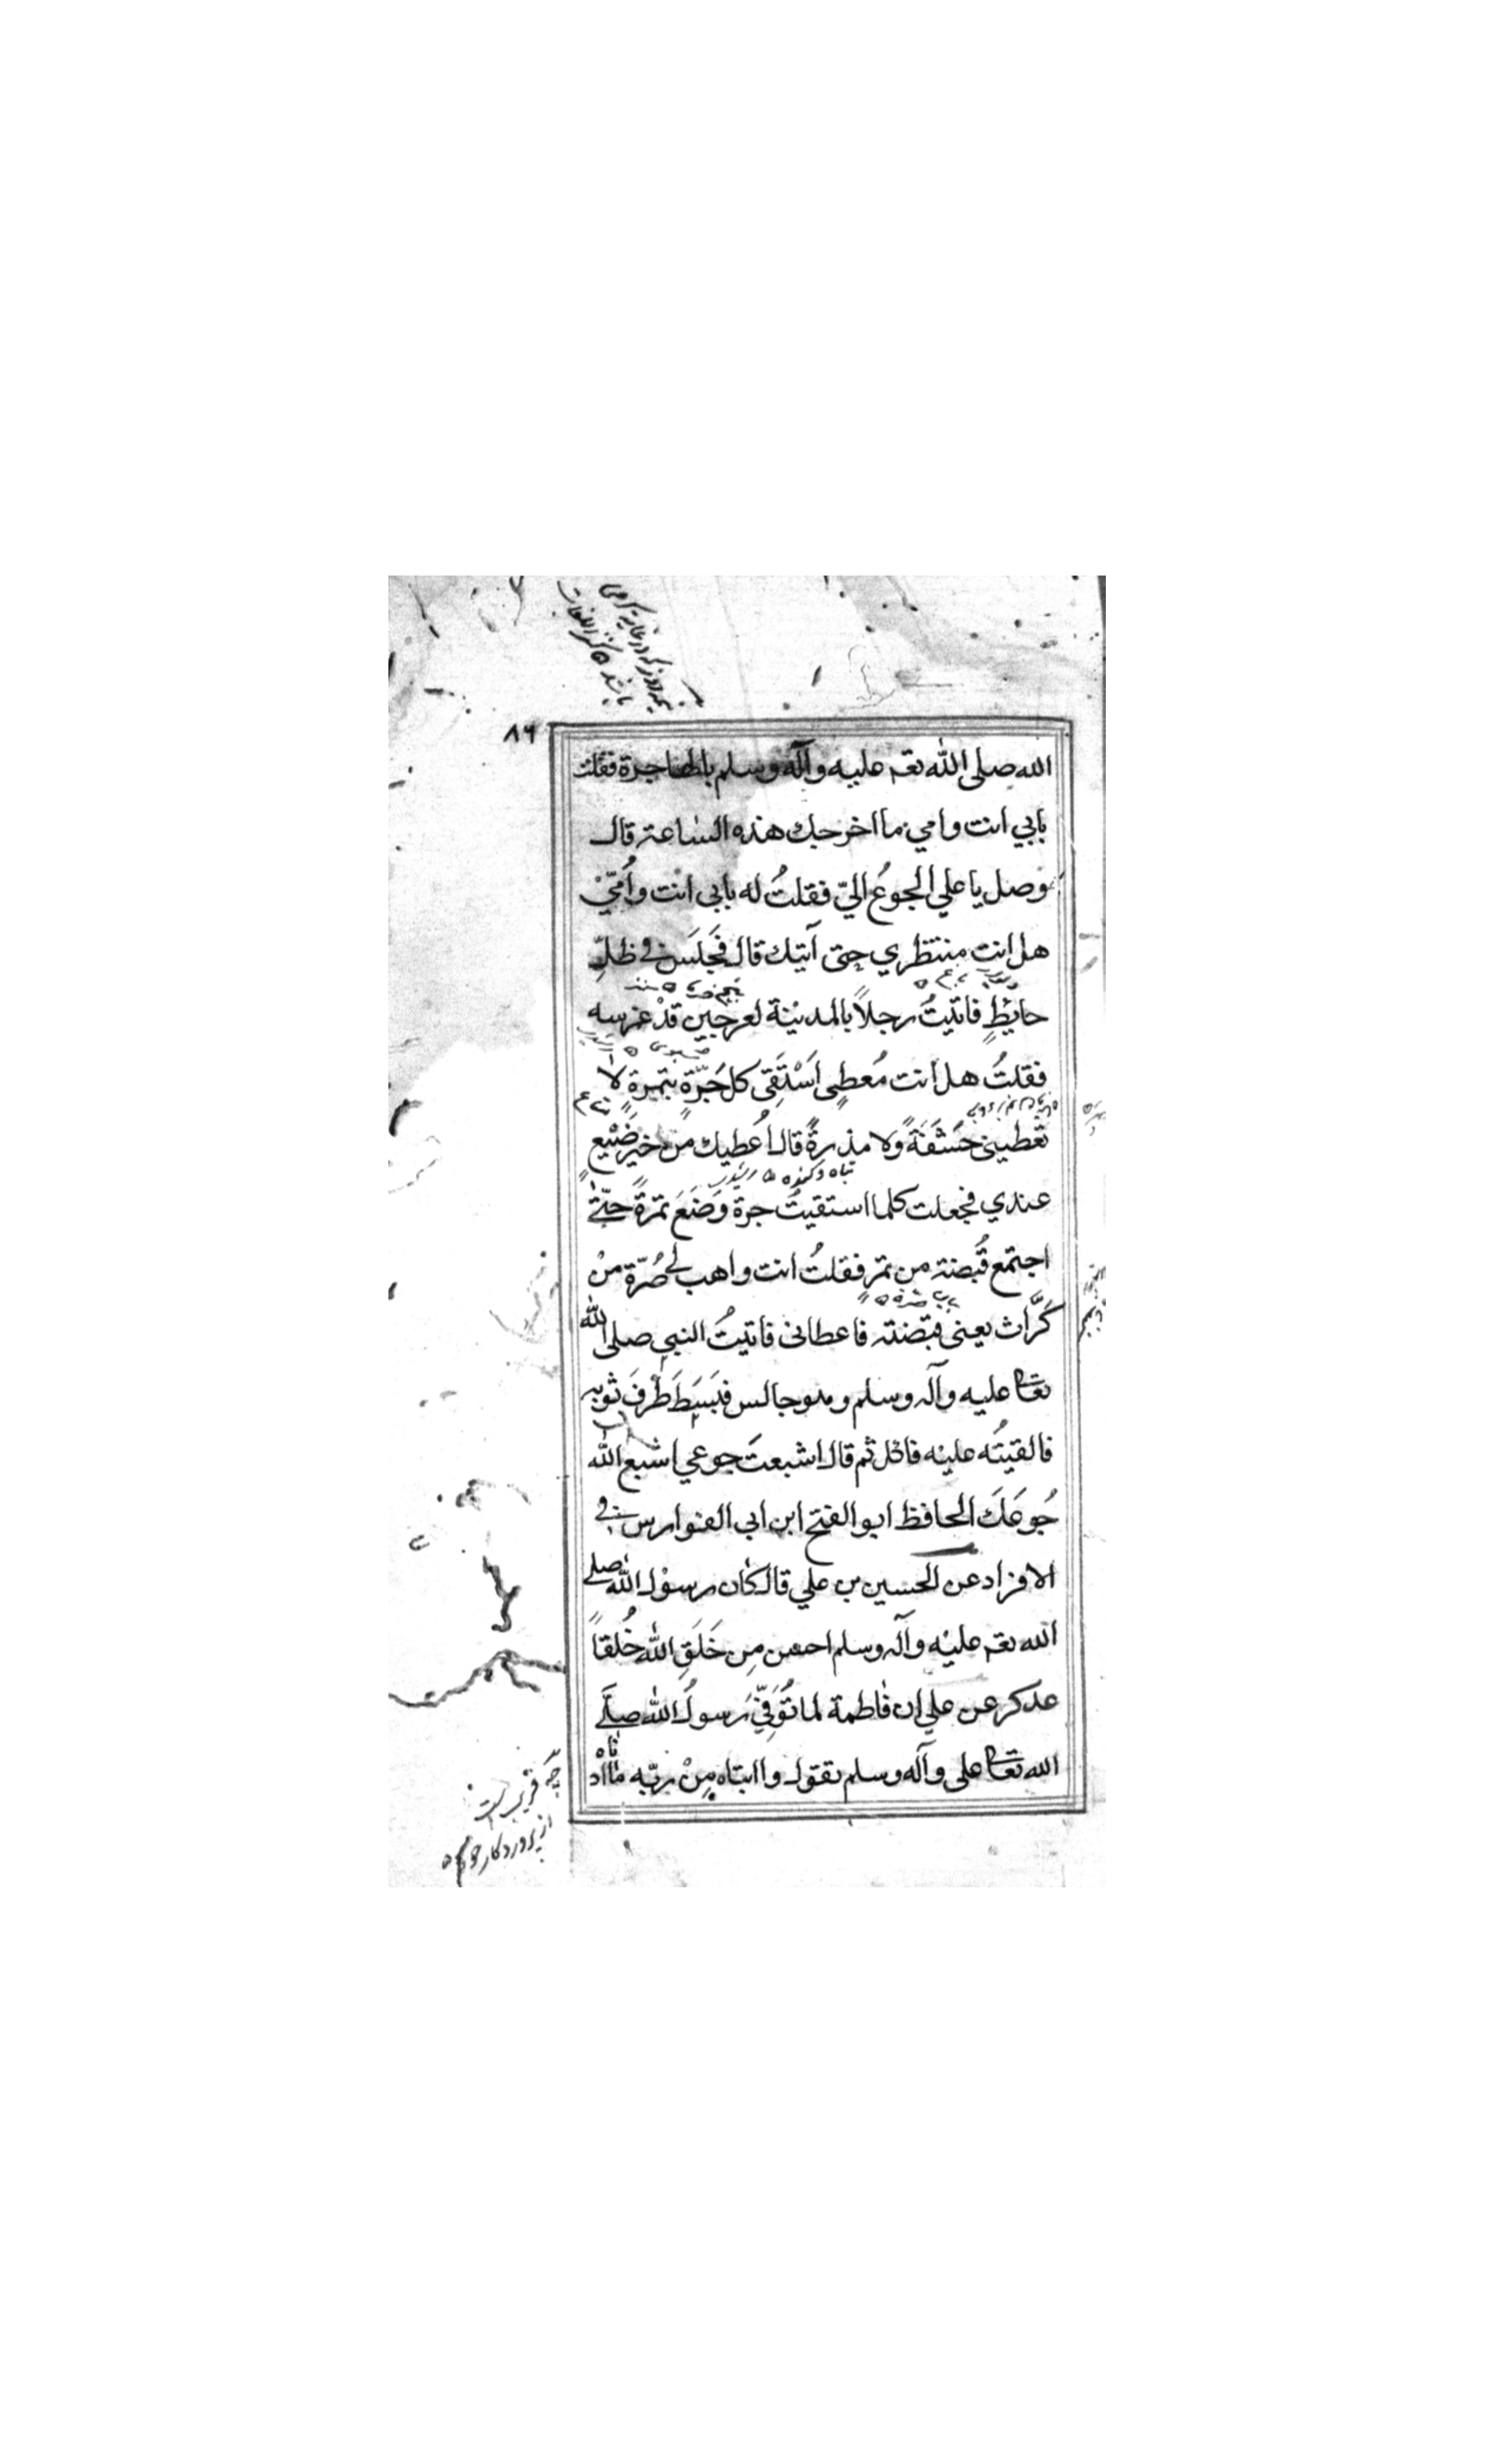 نیم روز که در غایه گرمی
باشد کنز اللغات
٨٦
الله صلى الله تعه عليه وآله وسلم بالهاجرة فقلت
بابي انت وامي ما اخرجك هذه الساعة قال
وصل يا علي الجوعُ اليّ فقلتُ له بابى انْت واُمّيْ
هل انت منتظري حتى آتيك قال فَجَلَسَ في ظلِّ
حايطٍ فاتيتُ رجلاً بالمدينة لعرجين قدْ غرسه
فقلتُ هل انت مُعطِى اَسْتَقِى كل جَرّةٍ بتمرة لا
تعطينى حَشَفَةً ولا مذِرةً قال اُعطيك من خير ضَيْعٍ
عندي فجعلت كلما استقيتُ جرة وَضَعَ تمرةً حتّے
اجتمع قُبضة من تمر فقلتُ انت واهب لے صُرّة منْ
كَرَّاث يعنى قبضة فاعطانى فاتيتُ النبي صلى الله
تعالى عليه وآله وسلم وهو جالس فبَسَطَ طَرَفَ ثوبه
فالقيتُه عليْه فاكل ثم قال اشبعتَ جوعي اشبع الله
جُوعَك الحافظ ابو الفتح ابن ابي الفوارس في
الافراد عن الحسين بن علي قال كان رسوْل الله صلے
الله تعه عليْه وآله وسلم احسن مِن خَلَقِ الله خُلقاً
عد كر عن علي ان فاطمة لما تُوَفِّيَ رَسولُ الله صلَّے
الله تعالى على وآله وسلم تقول وا ابتاه مِنْ ربّه ما اَدْناه
چه قریب است
از پروردگار خود